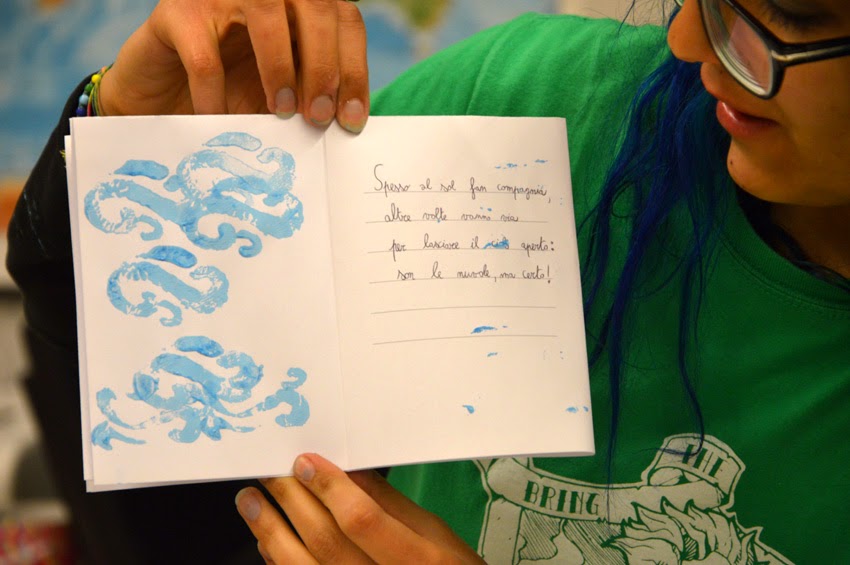 Spesso al sol fan compagnia,
altre volte vanno via
per lasciare il cielo aperto:
son le nuvole, ma certo!
BRING
THE